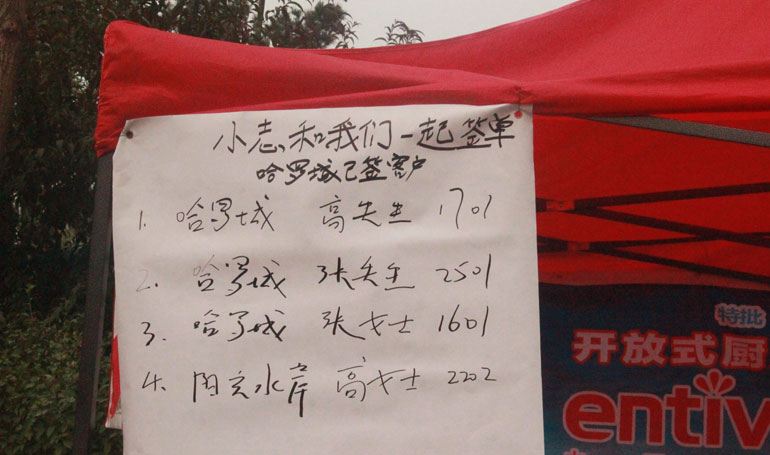 小志和我们一起签单
哈罗城已签客户
1. 哈罗城 高先生 1701
2. 哈罗城 张先生 2501
3. 哈罗城 张女士 1601
4. 阳光水岸 高女士 2202
特批
开放式厨
entiv